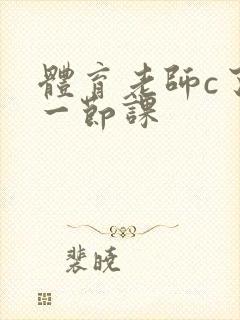 體育老師c了
一節課
裴曉